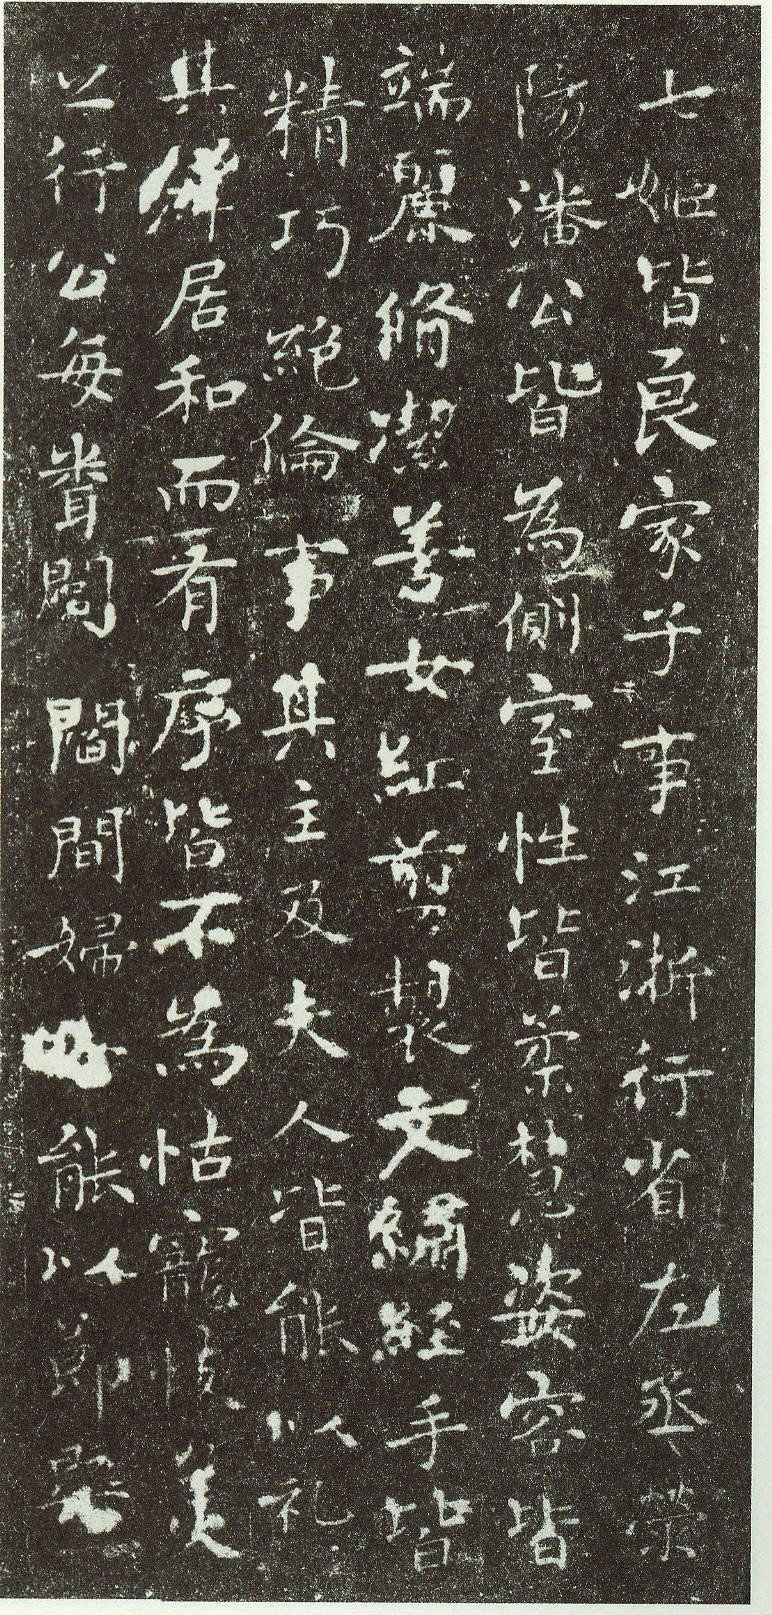 七姬皆良家子事江浙行省左丞滎
陽潘公皆為側室性皆柔慧姿容皆
端麗脩潔善女紅剪製文繡經手皆
精巧絕倫事其主及夫人皆能以礼
其羣居和而有序皆不為怙寵忮美
之行公每聞閭閻間婦能以節